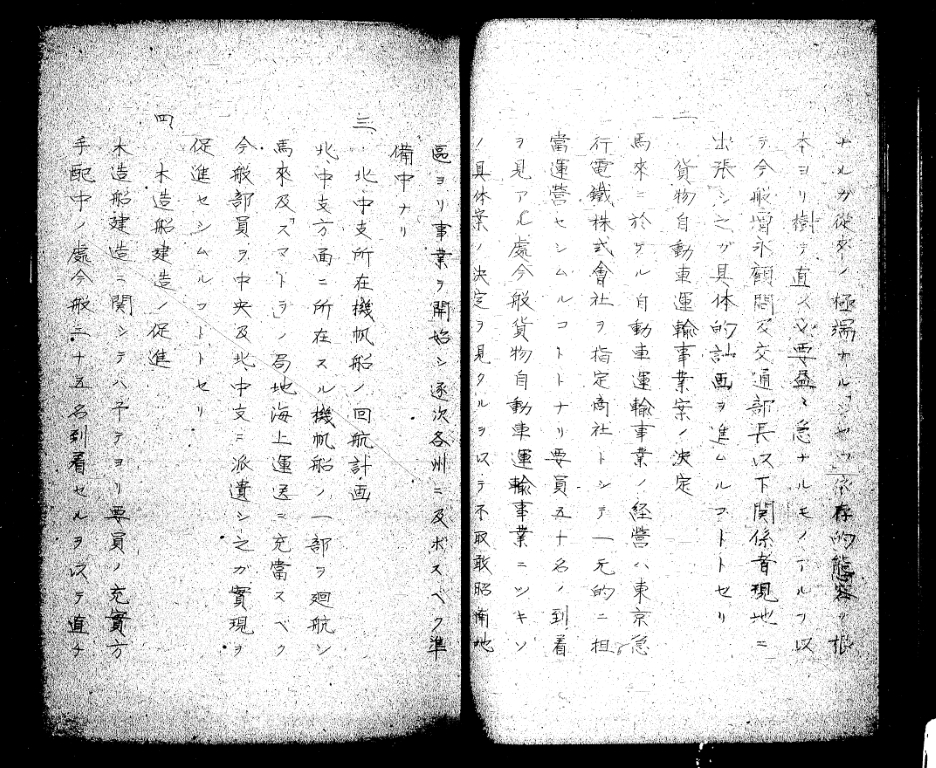 ナルガ從來ノ極端ナル「ジヤワ」依存的態容ヲ根
本ヨリ樹テ直ス必要益々急ナルモノアルヲ以
テ今般增永顧問及交通部長以下關係者現地ニ
出張シ之ガ具体的計画ヲ進ムルコトトセリ
二 貨物自動車運輸事業案ノ決定
馬來ニ於ケル自動車運輸事業ノ經營ハ東京急
行電鐵株式會社ヲ指定商社トシテ一元的ニ担
當運營セシムルコトトナリ要員五十名ノ到着
ヲ見アル處今般貨物自動車運輸事業ニツキソ
ノ具体案ノ決定ヲ見タルヲ以テ不取敢昭南地
區ヨリ事業ヲ開始シ逐次各州ニ及ボスベク準
備中ナリ
三 北中支所在機帆船ノ回航計画
北中支方面ニ所在スル機帆船ノ一部ヲ廻航シ
馬來及「スマトラ」ノ局地海上運送ニ充當スベク
今般部員ヲ中央及北、中支ニ派遣シ之ガ實現ヲ
促進セシムルコトトセリ
四 木造船建造ノ促進
木造船建造ニ關シテハ予テヨリ要員ノ充實方
手配中ノ處今般二十五名到着セルヲ以テ直チ